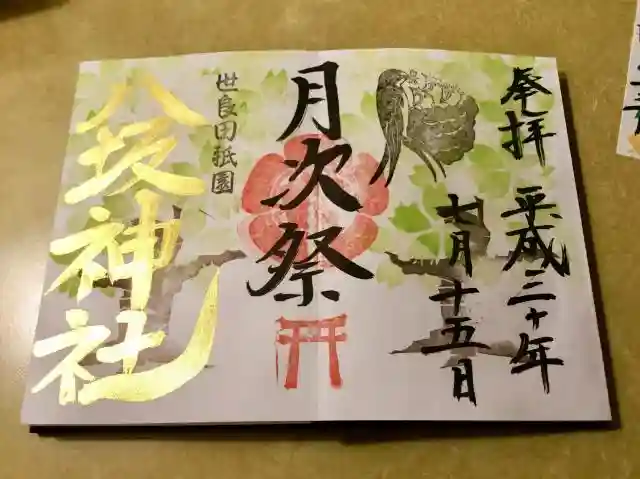 奉拝
平成三十年
七月十五日
月次祭
世良田祇園
八坂神社